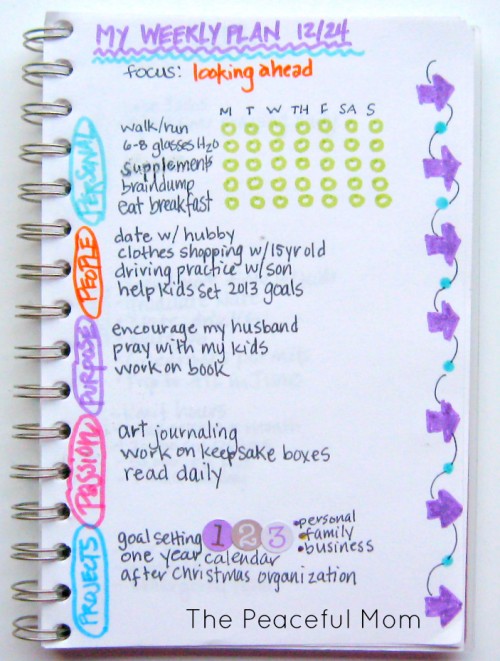 MY WEEKLY PLAN 12/24
focus: looking ahead
M T W TH F SA S
PERSONAL
walk/run
6-8 glasses H2O
supplements
braindump
eat breakfast
PEOPLE
date w/ hubby
clothes shopping w/15yr old
driving practice w/son
help kids set 2013 goals
PURPOSE
encourage my husband
pray with my kids
work on book
PASSION
art journaling
work on keepsake boxes
read daily
PROJECTS
goal setting 1 2 3 •personal
•family
•business
one year calendar
after Christmas organization
The Peaceful Mom